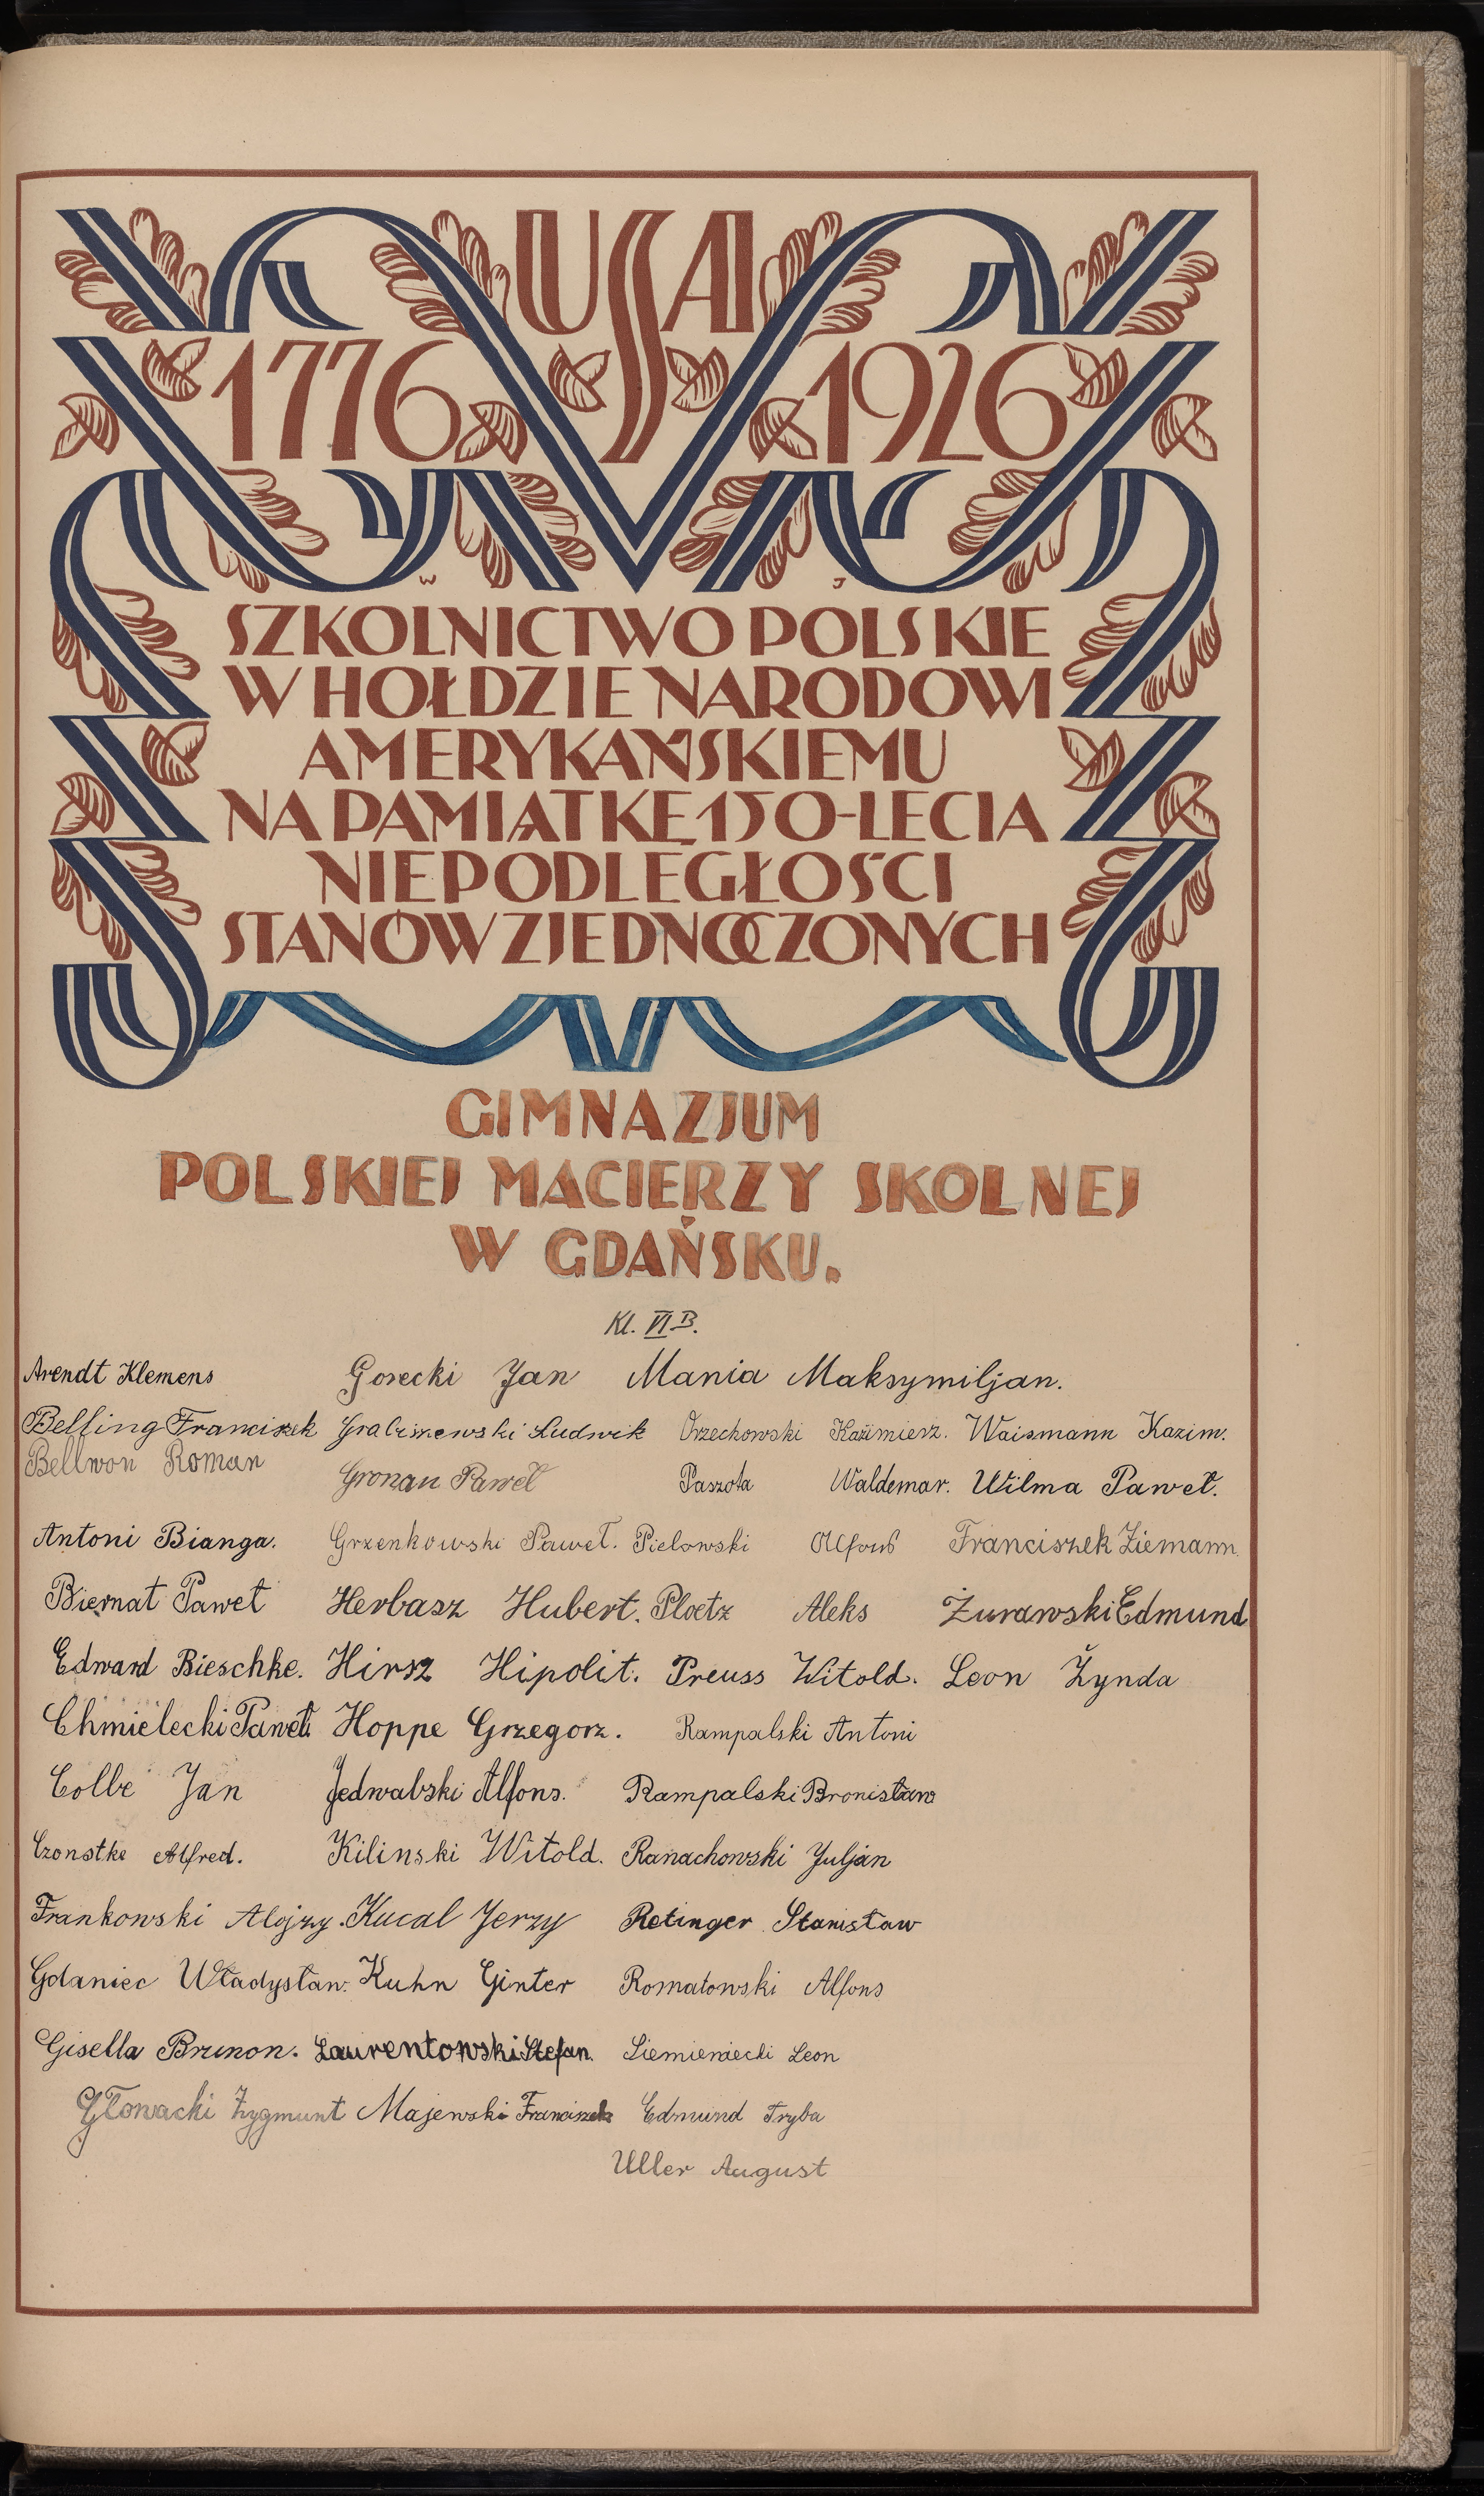 USA
1776 1926
W J
SZKOLNICTWO POLSKIE
W HOŁDZIE NARODOWI
AMERYKAŃSKIEMU
NA PAMIĄTKĘ 150-LECIA
NIEPODLEGŁOŚCI
STANÓW ZJEDNOCZONYCH
GIMNAZJUM
POLSKIEJ MACIERZY SKOLNEJ
W GDAŃSKU.
Kl. VI B.
Arendt Klemens Gorecki Jan Mania Maksymiljan.
Belling Franciszek Ludwik Orzechowski Kazimierz. Waismann Kazim.
Bellwon Roman Gronau Paweł Paszota Waldemar. Wilma Paweł.
Antoni Bianga. Grzenkowski Paweł. Pielowski Alfons Franciszek Ziemann.
Biernat Paweł Herbasz Hubert. Ploetz Aleks Żurawski Edmund
Edward Bieschke. Hirsz Hipolit. Preuss Witold. Leon Żynda
Chmielecki Paweł. Hoppe Grzegorz. Rampalski Antoni
Colbe Jan Jedwabski Alfons. Rampalski Bronisław
Czonstke Alfred. Kilinski Witold. Ranachowski Juljan
Frankowski Alojzy. Kucal Jerzy Retinger Stanisław
Gdaniec Władysław. Kuhn Ginter Romatowski Alfons
Gisella Brunon. Laurentowski Stefan. Siemieniecki Leon
Głowacki Zygmunt Majewski Franciszek Edmund Tryba
Uller August